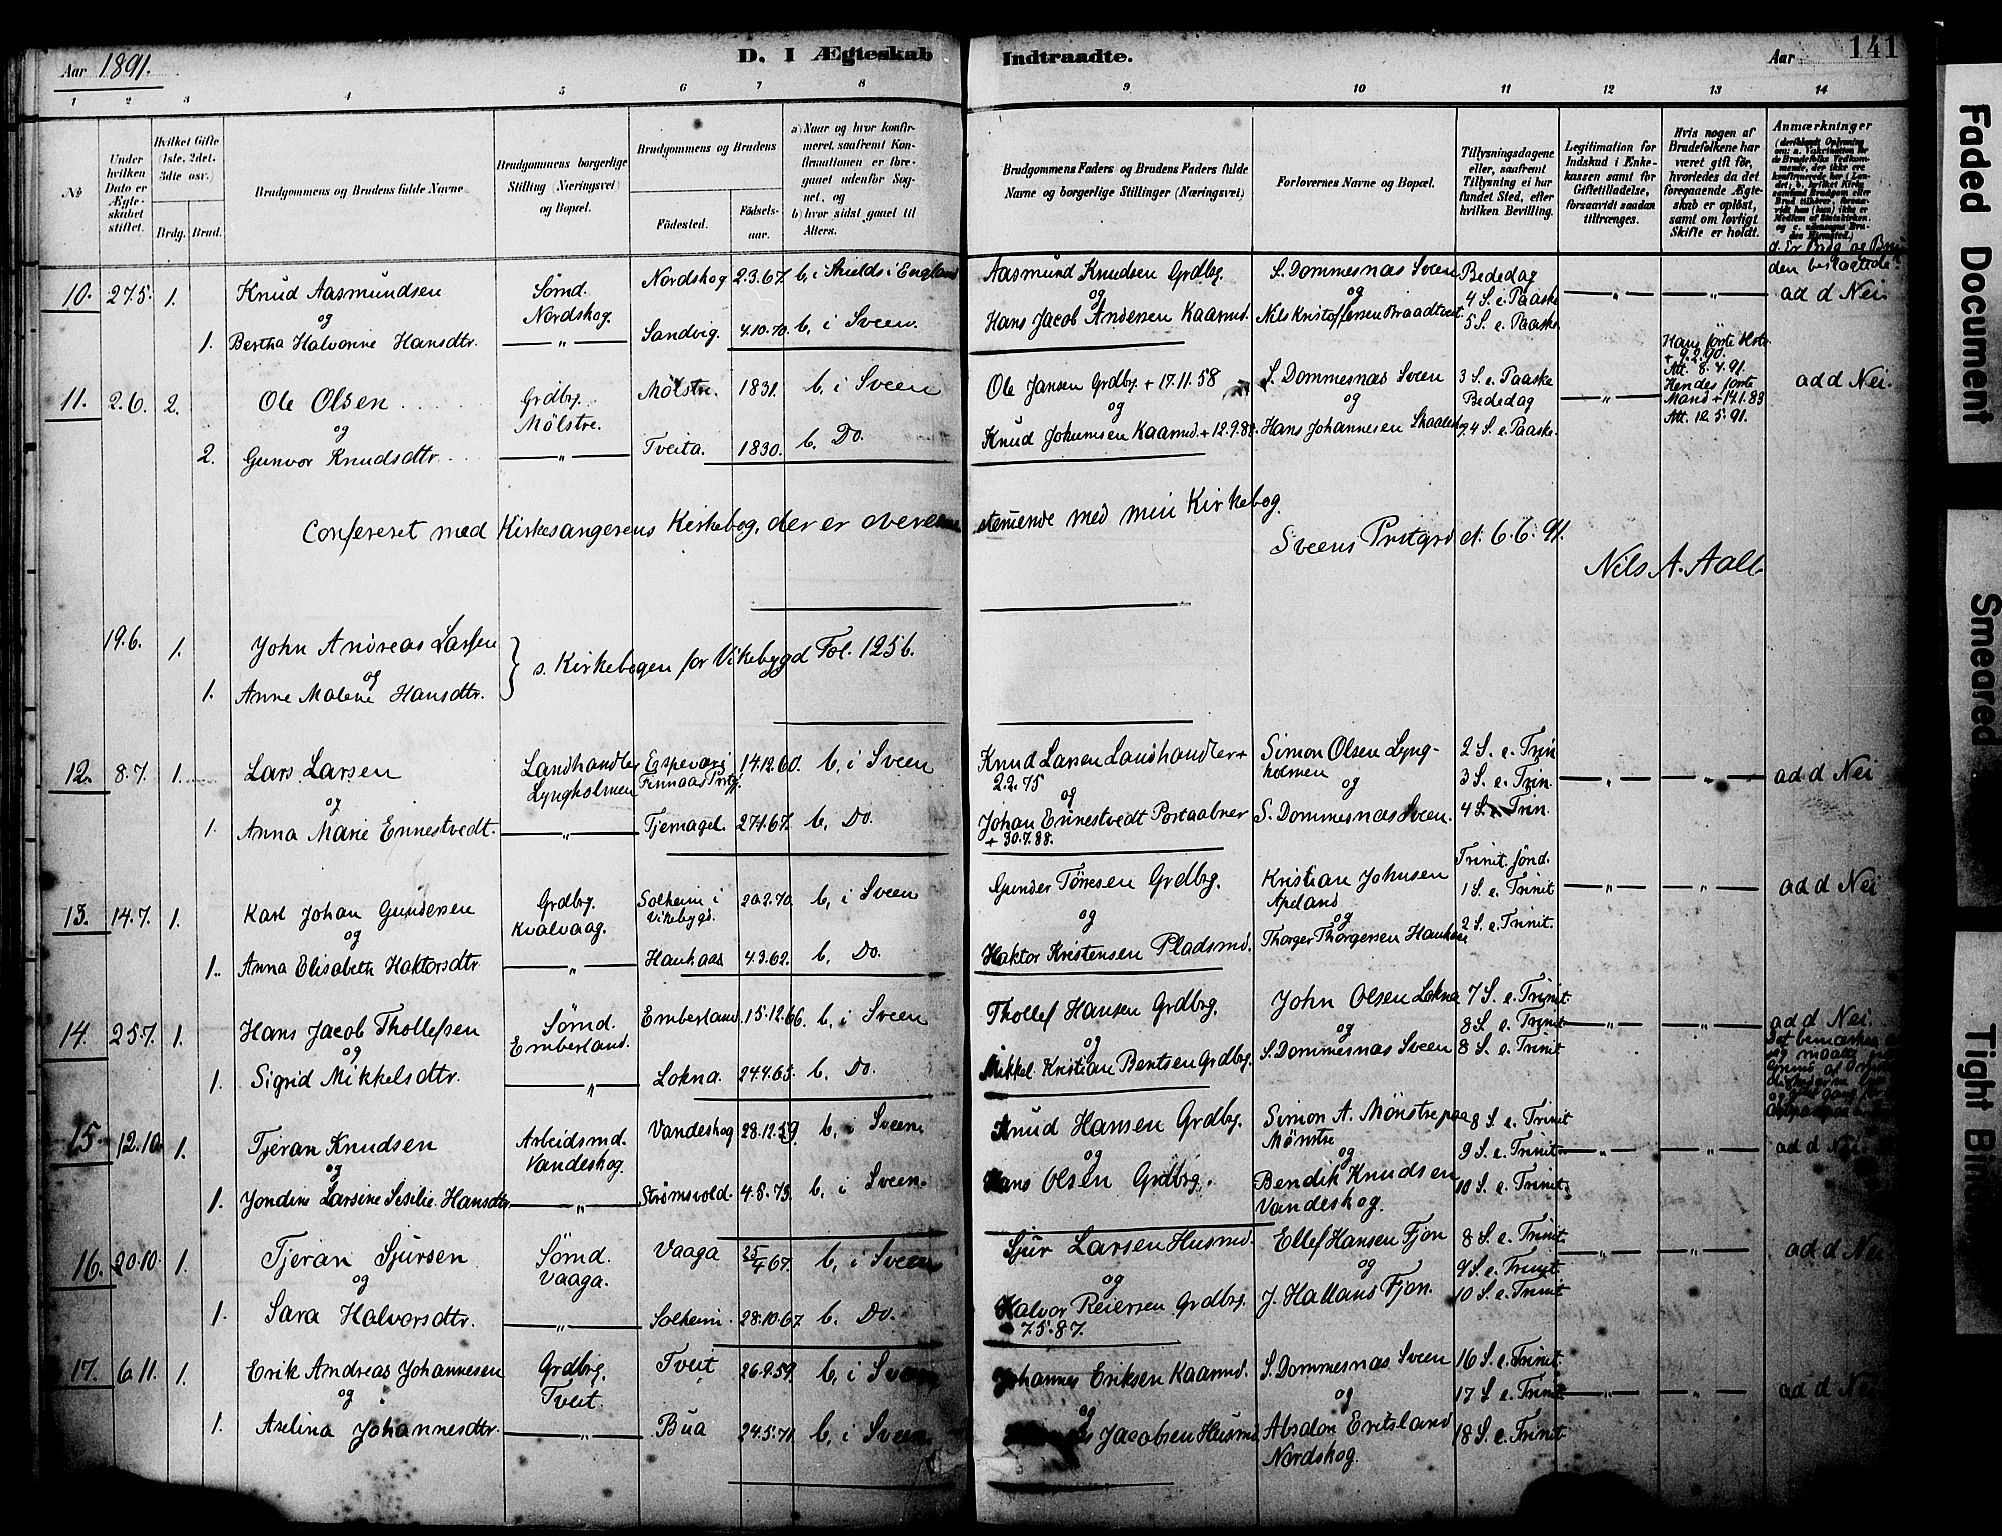 Aar 1891.
D. I Ægteskab Indtraadte.
Aar
141
1 2 3 4 5 6 7 8 9 10 11 12 13 14
No
Under hvilken Dato er Ægteskabet stiftet.
Hvilket Gifte (1ste, 2det, 3dte osv.)
Brdg. Brud.
Brudgommens og Brudens fulde Navne
Brudgommens borgerlige Stilling (Næringsvei) og Bopæl.
Brudgommens og Brudens
Fødested.
Fødselsaar.
a) Naar og hvor konfirmeret, saafremt Konfirmationen er foregaaet udenfor Sognet, og
b) hvor sidst gaaet til Alters.
Brudgommens Faders og Brudens Faders fulde Navne og borgerlige Stillinger (Næringsvei)
Forlovernes Navne og Bopæl.
Tillysningsdagene eller, saafremt Tillysning ei har fundet Sted, efter hvilken Bevilling.
Legitimation for Indskud i Ænkekassen samt for Giftetilladelse, forsaavidt saadan tiltrænges.
Hvis nogen af Brudefolkene har været gift før, hvorledes da det foregaaende Ægteskab er opløst, samt om lovligt Skifte er holdt.
Anmærkninger
d. Er Brdg. og Bru-
den beslægtede?
10. 27.5. 1. Knud Aasmundsen Sømd. Nordskog. Nordskog 2.3.67. b. i Shields i England Aasmund Knudsen Grdbg. S. Dommesnæs Sveen Bededag ad d Nei.
og og og 4 S. e. Paaske
1. Bertha Halvonne Hansdtr. " Sandvig. 4.10.70. b. i Sveen. Hans Jacob Andersen Kaarmd. Nils Kristoffersen Braadtvet 5 S. e. Paaske
11. 2.6. 2. Ole Olsen Grdbg. Mølstre. Mølstre. 1831. b. i Sveen Ole Jansen Grdbg. + 17.11.58 S. Dommesnæs Sveen 3 S. e. Paaske Hans første Hstr. + 9.2.90. Att. 8.4.91. ad d Nei.
og og og Bededag Hendes første Mand + 14.1.83 Att. 12.5.91.
2. Gunvor Knudsdtr. " Tveita. 1830. b. Do. Knud Johannesen Kaarmd. + 12.9.82. Hans Johannesen 4 S. e. Paaske.
Confereret med Kirkesangerens Kirkebog, der er overensstemmende med min Kirkebog.
Sveens Prstgrd d: 6.6.91.
Nils A. Aall
19.6. 1. John Andreas Larsen
og } s. Kirkebogen for Vikebygd Fol. 125 b.
1. Anne Malene Hansdtr.
12. 8.7. 1. Lars Larsen Landhandler Lyngholmen Espevær i Finnaas Prstg. 14.12.60. b. i Sveen Knud Larsen Landhandler + 2.2.75 Simon Olsen Lyngholmen 2 S. e. Trin ad d Nei
og og og 3 S. e. Trin.
1. Anna Marie Ennestvedt. " Tjernagel. 27.1.67. b. Do. Johan Ennestvedt Postaabner + 30.7.88. S. Dommesnæs Sveen. 4 S. e. Trin.
13. 14.7. 1. Karl Johan Gundersen Grdbg. Kvalvaag. Solheim i Vikebygd. 20.2.70. b. i Sveen Gunder Tørresen Grdbg. Kristian Johnsen Apeland Trinit. sønd. ad d Nei
og og og 1 S. e. Trinit
1. Anna Elisabeth Haktorsdtr " Hauhaas 4.3.62. b. Do. Haktor Kristensen Pladsmd. Thorger Thorgersen 2 S. e. Trinit.
14. 25.7. 1. Hans Jacob Thollefsen Sømd. Emberland. Emberland. 15.12.66. b. i Sveen Thollef Hansen Grdbg. John Olsen Lokna 7 S. e. Trinit. ad d Nei.
og og og 8 S. e. Trinit
1. Sigrid Mikkelsdtr. " Lokna. 24.4.65. b. Do. Mikkel Kristian Bentsen Grdbg. S. Dommesnæs Sveen 8 S. e. Trinit
15. 12.10 1. Tjeran Knudsen Arbeidsmd. Vandeskog. Vandeskog 28.12.59. b. i Sveen Knud Hansen Grdbg. Simon A. Mønstre paa Mønstre 8 S. e. Trinit ad d Nei
og og og 9 S. e. Trinit
1. Jondine Larsine Sesilie Hansdtr. " Strømsvold. 4.8.73. b. i Sveen. Hans Olsen Grdbrg. Bendik Knudsen Vandeskog. 10 S. e. Trinit
16. 20.10. 1. Tjeran Sjursen Sømd. Vaaga. Vaaga 25/4 67. b. i Sveen Sjur Larsen Husmd. Ellef Hansen Fjon 8 S. e. Trinit ad d Nei
og og og 9 S. e. Trinit
1. Sara Halvorsdtr. " Solheim. 28.10.67. b. Do. Halvor Reiersen Grdbrg. 7.5.87. J. Hallans Fjon. 10 S. e. Trinit
17. 6.11. 1. Erik Andreas Johannesen Grdbrg. Tveit. Tveit 26.9.59. b. i Sveen Johannes Eriksen Kaarmd. S. Dommesnæs Sveen 16 S. e. Trinit. ad d Nei
og og og 17 S. e. Trinit
1. Aselina Johannesdtr. " Bua 24.5.71. b. i Sveen Jacobsen Husmd Absalon Eritsland Nordskog. 18 S. e. Trinit
Faded Document
Smeared
Tight